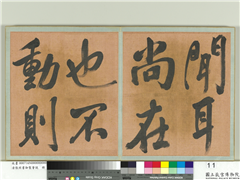 聞耳
尚在
也不
動則
11
國立故宮博物院